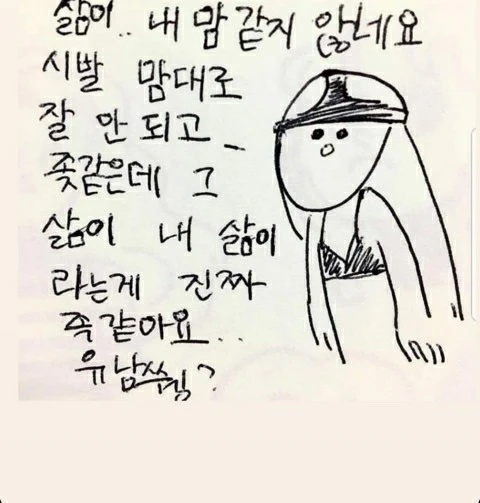 삶이.. 내 맘 같지 않네요
시발 맘대로
잘 안 되고_
좆같은데 그
삶이 내 삶이
라는게 진짜
죽같아요..
유남쓰엠?